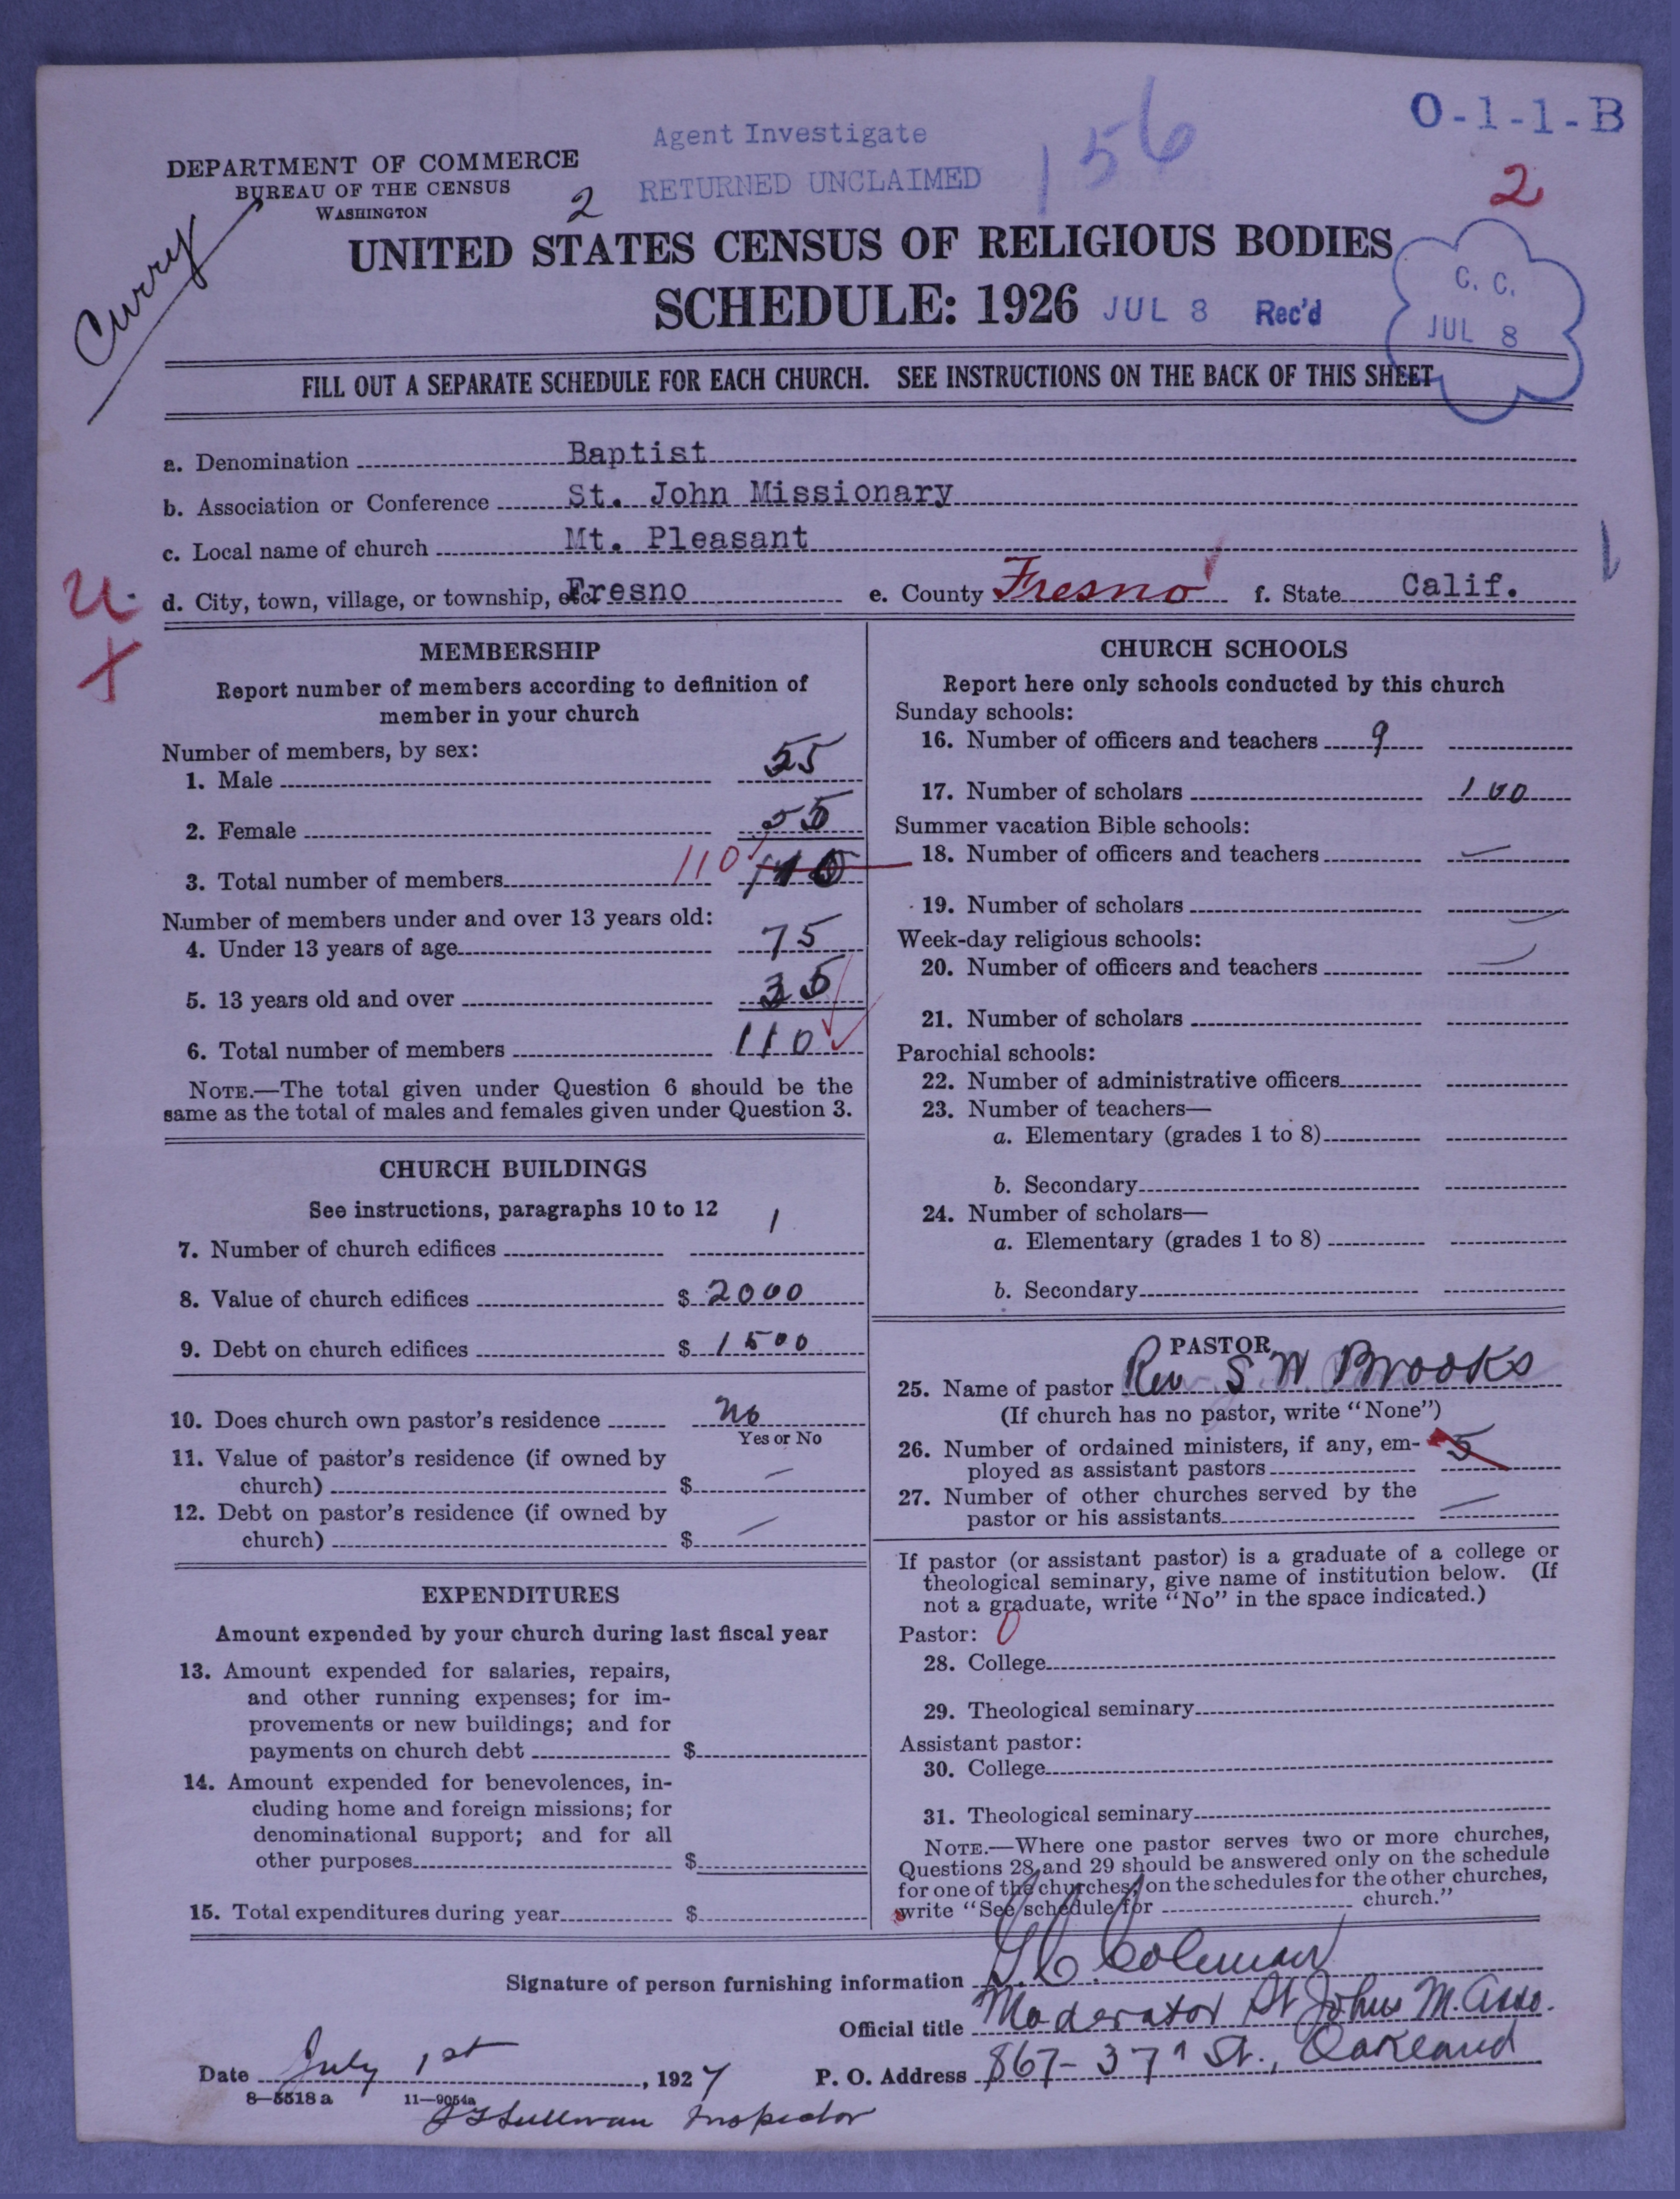 O-1-1-B
Agent Investigate
156
DEPARTMENT OF COMMERCE
BUREAU OF THE CENSUS
WASHINGTON
RETURNED UNCLAIMED
2
2
Curry
UNITED STATES CENSUS OF RELIGIOUS BODIES
SCHEDULE: 1926
JUL 8 Rec'd
C. C.
JUL 8
FILL OUT A SEPARATE SCHEDULE FOR EACH CHURCH. SEE INSTRUCTIONS ON THE BACK OF THIS SHEET
a. Denomination Baptist
b. Association or Conference St. John Missionary
c. Local name of church Mt. Pleasant
d. City, town, village, or township, etc. Fresno e. County Fresno f. State Calif.
U.
X
MEMBERSHIP
Report number of members according to definition of
member in your church
Number of members, by sex:
1. Male 55
2. Female 55
3. Total number of members 110 110
Number of members under and over 13 years old:
4. Under 13 years of age 75
5. 13 years old and over 35
6. Total number of members 110
NOTE.—The total given under Question 6 should be the
same as the total of males and females given under Question 3.
CHURCH BUILDINGS
See instructions, paragraphs 10 to 12
7. Number of church edifices 1
8. Value of church edifices $ 2000
9. Debt on church edifices $ 1500
10. Does church own pastor's residence No
Yes or No
11. Value of pastor's residence (if owned by
church) $ —
12. Debt on pastor's residence (if owned by
church) $ —
EXPENDITURES
Amount expended by your church during last fiscal year
13. Amount expended for salaries, repairs,
and other running expenses; for im-
provements or new buildings; and for
payments on church debt $
14. Amount expended for benevolences, in-
cluding home and foreign missions; for
denominational support; and for all
other purposes $
15. Total expenditures during year $
CHURCH SCHOOLS
Report here only schools conducted by this church
Sunday schools:
16. Number of officers and teachers 9
17. Number of scholars 100
Summer vacation Bible schools:
18. Number of officers and teachers —
19. Number of scholars —
Week-day religious schools:
20. Number of officers and teachers —
21. Number of scholars
Parochial schools:
22. Number of administrative officers
23. Number of teachers—
a. Elementary (grades 1 to 8)
b. Secondary
24. Number of scholars—
a. Elementary (grades 1 to 8)
b. Secondary
PASTOR
25. Name of pastor Rev S. W. Brooks
(If church has no pastor, write "None")
26. Number of ordained ministers, if any, em-
ployed as assistant pastors 5
27. Number of other churches served by the
pastor or his assistants —
If pastor (or assistant pastor) is a graduate of a college or
theological seminary, give name of institution below. (If
not a graduate, write "No" in the space indicated.)
Pastor: 0
28. College
29. Theological seminary
Assistant pastor:
30. College
31. Theological seminary
NOTE.—Where one pastor serves two or more churches,
Questions 28 and 29 should be answered only on the schedule
for one of the churches; on the schedules for the other churches,
write "See schedule for church."
Signature of person furnishing information G. C. Coleman
Official title Moderator St Johns M. Asso.
Date July 1st, 1927 P. O. Address 867-37th St., Oakland
8—5518 a 11—9054a
Inspector